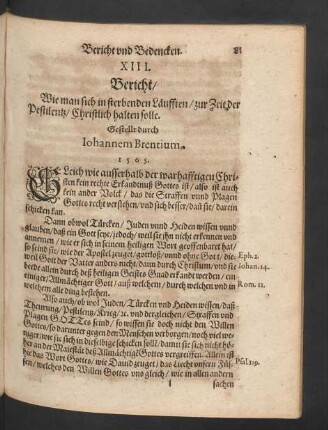 Bericht vnd Bedencken. 81
XIII.
Bericht/
Wie man sich in sterbenden Läufften/ zur Zeit der
Pestilentz/ Christlich halten solle.
Gestellt durch
Iohannem Brentium.
1565.
GLeich wie ausserhalb der warhafftigen Chri-
sten kein rechte Erkandtnuß Gottes ist/ also ist auch
kein ander Volck/ das die Straffen vnnd Plagen
Gottes recht verstehen/ vnd sich besser/ dañ sie/ darein
schicken kan.
Dann obwol Türcken/ Juden vnnd Heiden wissen vnd
glauben/ daß ein Gott seye/ jedoch/ weil sie ihn nicht erkennen vnd
annemen/ wie er sich in seinem heiligen Wort geoffenbaret hat/
so seind sie/ wie der Apostel zeuget/ gottloß/ vnnd ohne Gott/ die-
weil Gott der Vater anders nicht/ dann durch Christum/ vnd sie
beede allein durch deß heiligen Geistes Gnad erkandt werden/ ein
einiger/ Allmächtiger Gott/ auß welchem/ durch welchen vnd in
welchem alle ding bestehen.
Eph. 2.
Iohan. 14.
Rom. 11.
Also auch/ ob wol Juden/ Türcken vnd Heiden wissen/ daß
Thewrung/ Pestilentz/ Krieg/ ꝛc. vnd dergleichen/ Straffen vnd
Plagen GOTTes seind/ so wissen sie doch nicht den Willen
Gottes/ so darunter gegen dem Menschen verborgen/ noch viel we-
niger/ wie sie sich in dieselbige schicken soll/ damit sie sich nicht hö-
her an der Maiestät deß Allmächtigē Gottes vergreiffen. Allein ist
es das Wort Gottes/ wie Dauid zeuget/ das Liecht vnsern Füs-
sen/ welches den Willen Gottes vns gleich/ wie in allen andern
Psal. 119.
l sachen